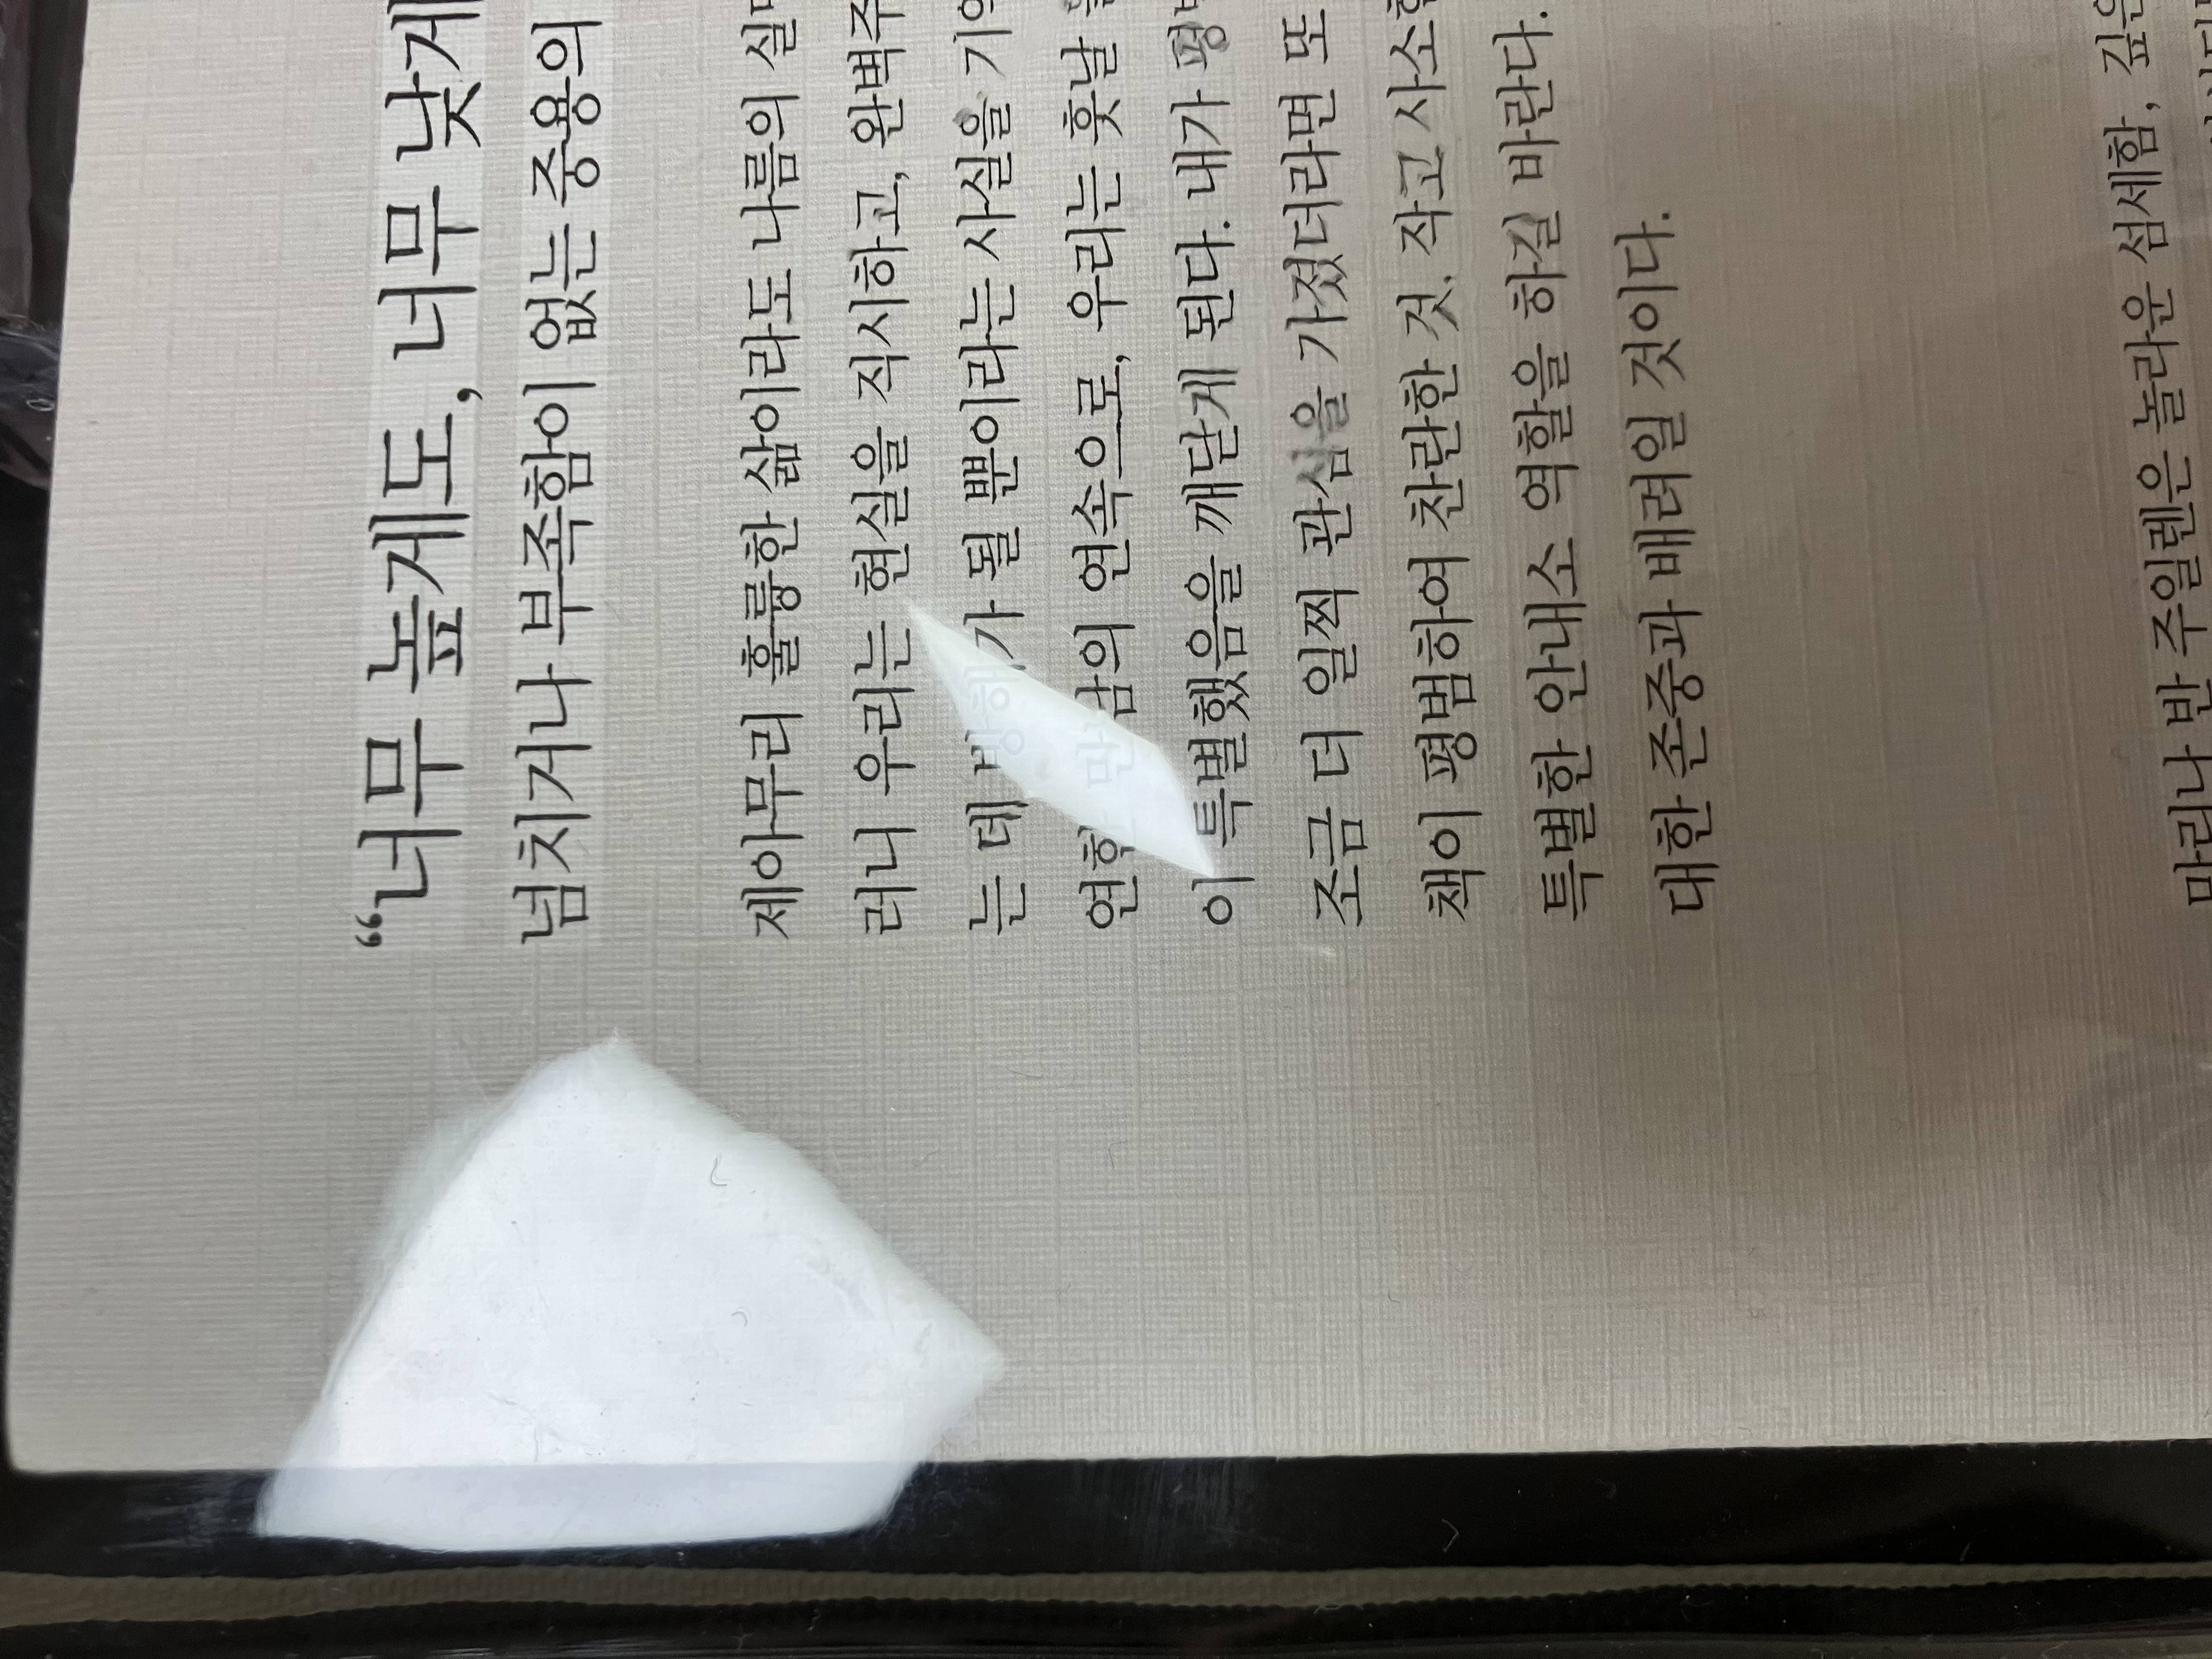 “너무 높게도, 너무 낮게
넘치거나 부족함이 없는 중용의
제아무리 훌륭한 삶이라도 나름의
러니 우리는 현실을 직시하고,
는 데 될 뿐이라는 사실을
연속으로, 우리는 훗날
이 특별했음을 깨닫게 된다. 내가
조금 더 일찍 관심을 가졌더라면 또
책이 평범하여 찬란한 것. 작고
특별한 안내소 역할을 하길 바란다.
대한 존중과 배려일 것이다.
마리나 반 주일렌은 놀라운 섬세함, 깊은